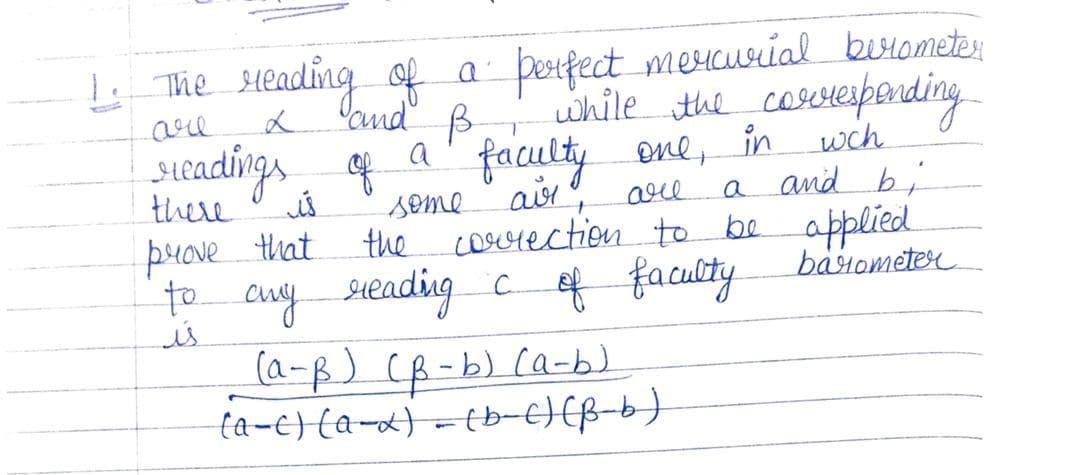 1. The reading of a perfect mercurial berometer
are α and β, while the corresponding
readings of a faculty one, in wch
there is some air, are a and b;
prove that the correction to be applied
to any reading c of faculty barometer
is
(a-β) (β-b) (a-b)
(a-c) (a-α) - (b-c) (β-b)